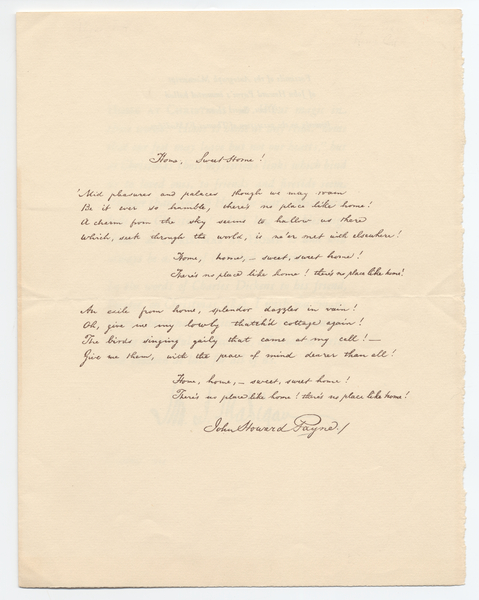 Home, Sweet Home!
'Mid pleasures and palaces though we may roam
Be it ever so humble, there's no place like home!
A charm from the sky seems to hallow us there
Which, seek through the world, is ne'er met with elsewhere!
Home, home, – sweet, sweet home!
There's no place like home! there's no place like home!
An exile from home, splendor dazzles in vain!
Oh, give me my lowly thatch'd cottage again!
The birds singing gaily that came at my call! –
Give me them, with the peace of mind dearer than all!
Home, home, – sweet, sweet home!
There's no place like home! there's no place like home!
John Howard Payne